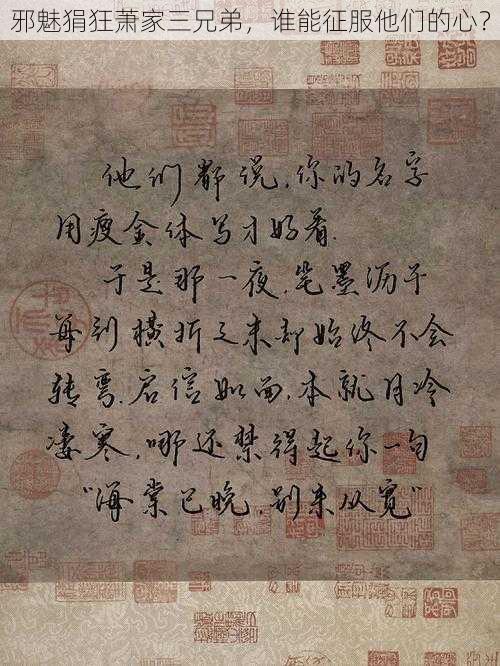 邪魅狷狂萧家三兄弟，谁能征服他们的心？
他们都说，你的名字
用瘦金体写才好看.
于是那一夜，笔墨沥干
每到横折之末却始终不会
转弯.启信如面，本就月冷
凄寒，哪还禁得起你一句
“海棠已晚，别来从宽”